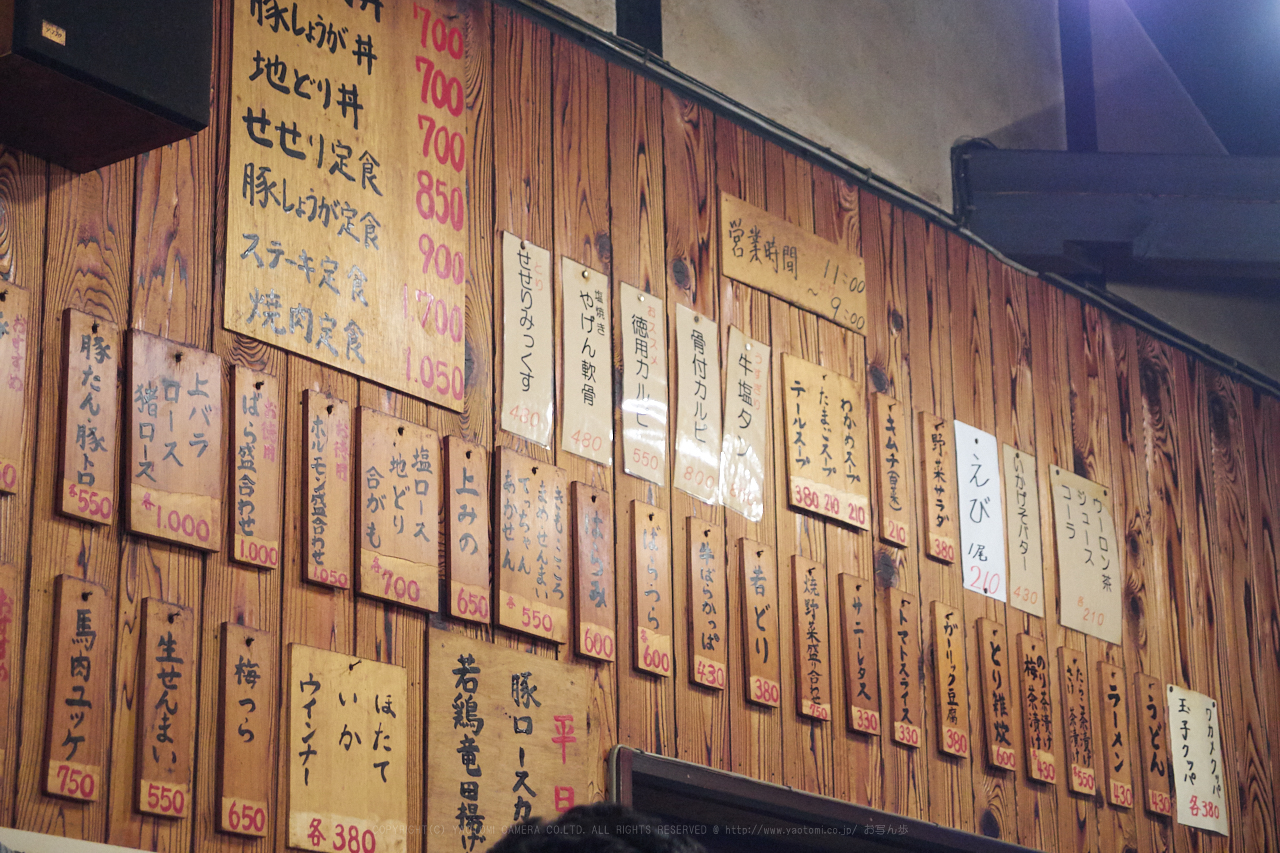 豚しょうが丼 700
地どり丼 700
せせり定食 850
豚しょうが定食 900
ステーキ定食 1,700
焼肉定食 1,050
営業時間 11:00
～9:00
とり
せせりみっくす
430
塩焼き
やげん軟骨
480
おススメ
徳用カルビ
550
骨付カルビ
牛塩タン
わかめスープ
たまごスープ
テールスープ
380 210 210
キムチ
210
野菜サラダ
380
えび
1尾
210
いかげそバター
430
ウーロン茶
ジュース
コーラ
各210
豚たん豚トロ
各550
上バラ
ロース
猪ロース
各1,000
お徳用
ばら盛合わせ
1,000
お徳用
ホルモン盛合わせ
1,050
塩ロース
地どり
合がも
各700
上みの
650
きもこころ
まめせんまい
てっちゃん
あかせん
各550
はらみ
600
ばらつら
各600
牛ばらかっぱ
430
若どり
380
焼野菜盛合わせ
750
サニーレタス
330
トマトスライス
330
ガーリック豆腐
380
とり雑炊
600
のり茶漬け
梅茶漬け
各430
たらこ茶漬け
さけ茶漬け
各550
ラーメン
430
うどん
430
ワカメクッパ
玉子クッパ
各380
馬肉ユッケ
750
生せんまい
550
梅つら
650
ほたて
いか
ウインナー
各380
平日
豚ロースカ
若鶏竜田揚げ
COPYRIGHT(C) YAOTOMI CAMERA CO.LTD. ALL RIGHTS RESERVED @ http://www.yaotomi.co.jp/ お写ん歩